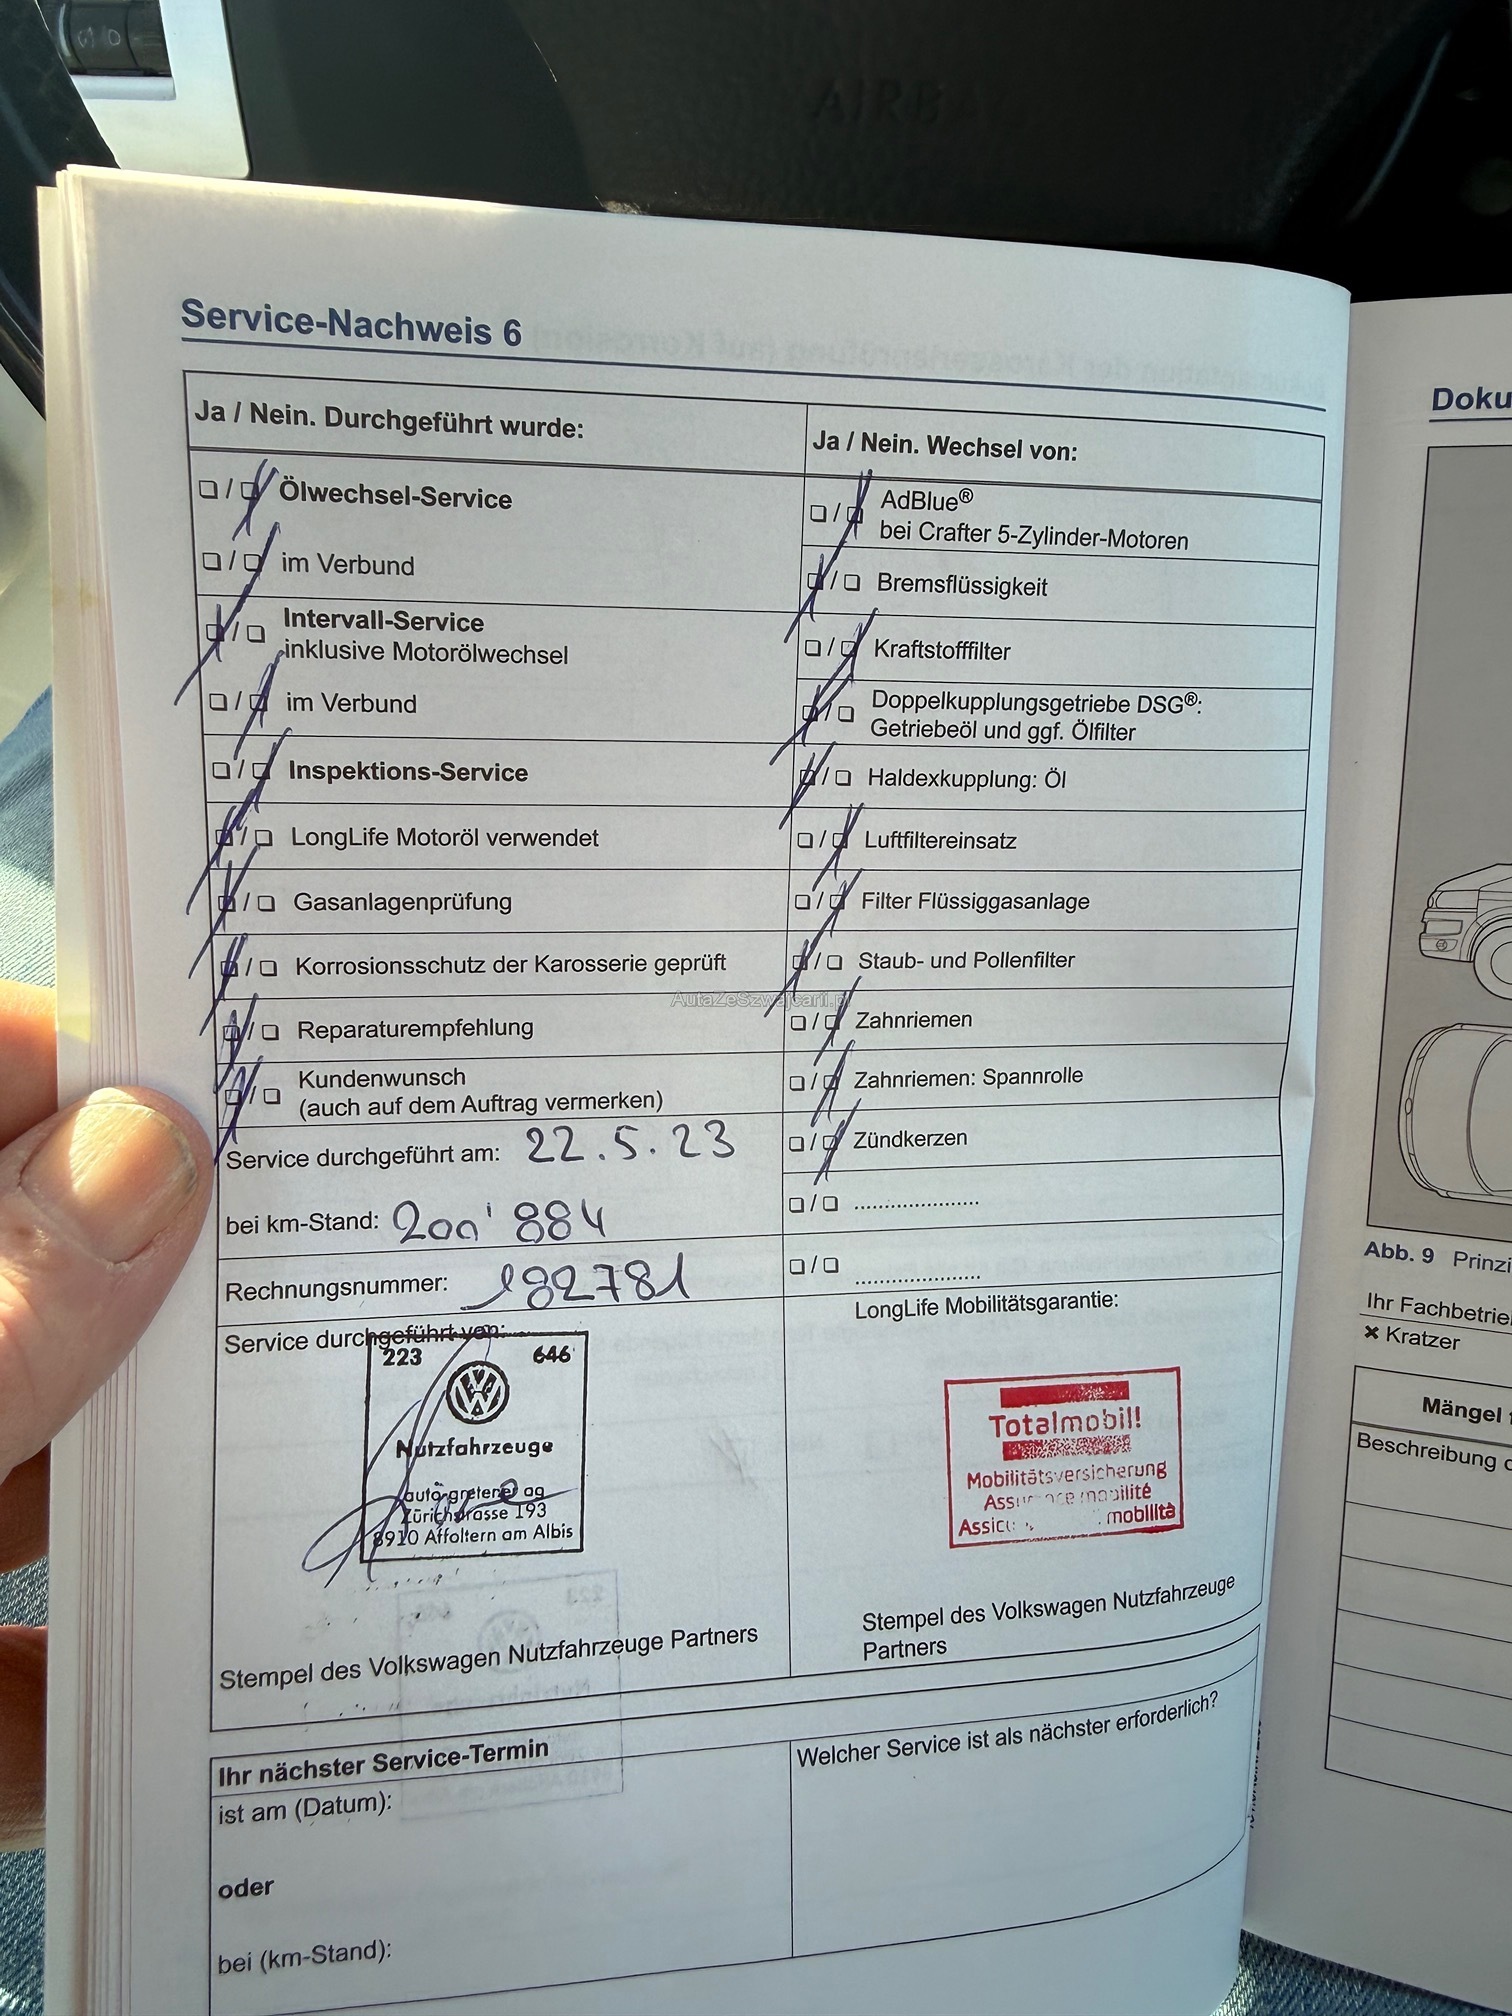 AIRBA
Service-Nachweis 6
Ja / Nein. Durchgeführt wurde:
Ölwechsel-Service
im Verbund
Intervall-Service
inklusive Motorölwechsel
im Verbund
Inspektions-Service
LongLife Motoröl verwendet
Gasanlagenprüfung
Korrosionsschutz der Karosserie geprüft
Reparaturempfehlung
Kundenwunsch
(auch auf dem Auftrag vermerken)
Service durchgeführt am: 22.5.23
bei km-Stand: 200'884
Rechnungsnummer: 182781
Service durchgeführt von:
223 646
Nutzfahrzeuge
auto-gretener ag
Zürichstrasse 193
8910 Affoltern am Albis
Stempel des Volkswagen Nutzfahrzeuge Partners
Ja / Nein. Wechsel von:
AdBlue®
bei Crafter 5-Zylinder-Motoren
Bremsflüssigkeit
Kraftstofffilter
Doppelkupplungsgetriebe DSG®:
Getriebeöl und ggf. Ölfilter
Haldexkupplung: Öl
Luftfiltereinsatz
Filter Flüssiggasanlage
Staub- und Pollenfilter
Zahnriemen
Zahnriemen: Spannrolle
Zündkerzen
....................
....................
LongLife Mobilitätsgarantie:
Totalmobil!
Mobilitätsversicherung
mobilité
mobilità
Stempel des Volkswagen Nutzfahrzeuge
Partners
Ihr nächster Service-Termin
ist am (Datum):
oder
bei (km-Stand):
Welcher Service ist als nächster erforderlich?
AutaZeSzwajcarii.pl
Doku
Abb. 9 Prinzi
Ihr Fachbetrie
× Kratzer
Mängel
Beschreibung